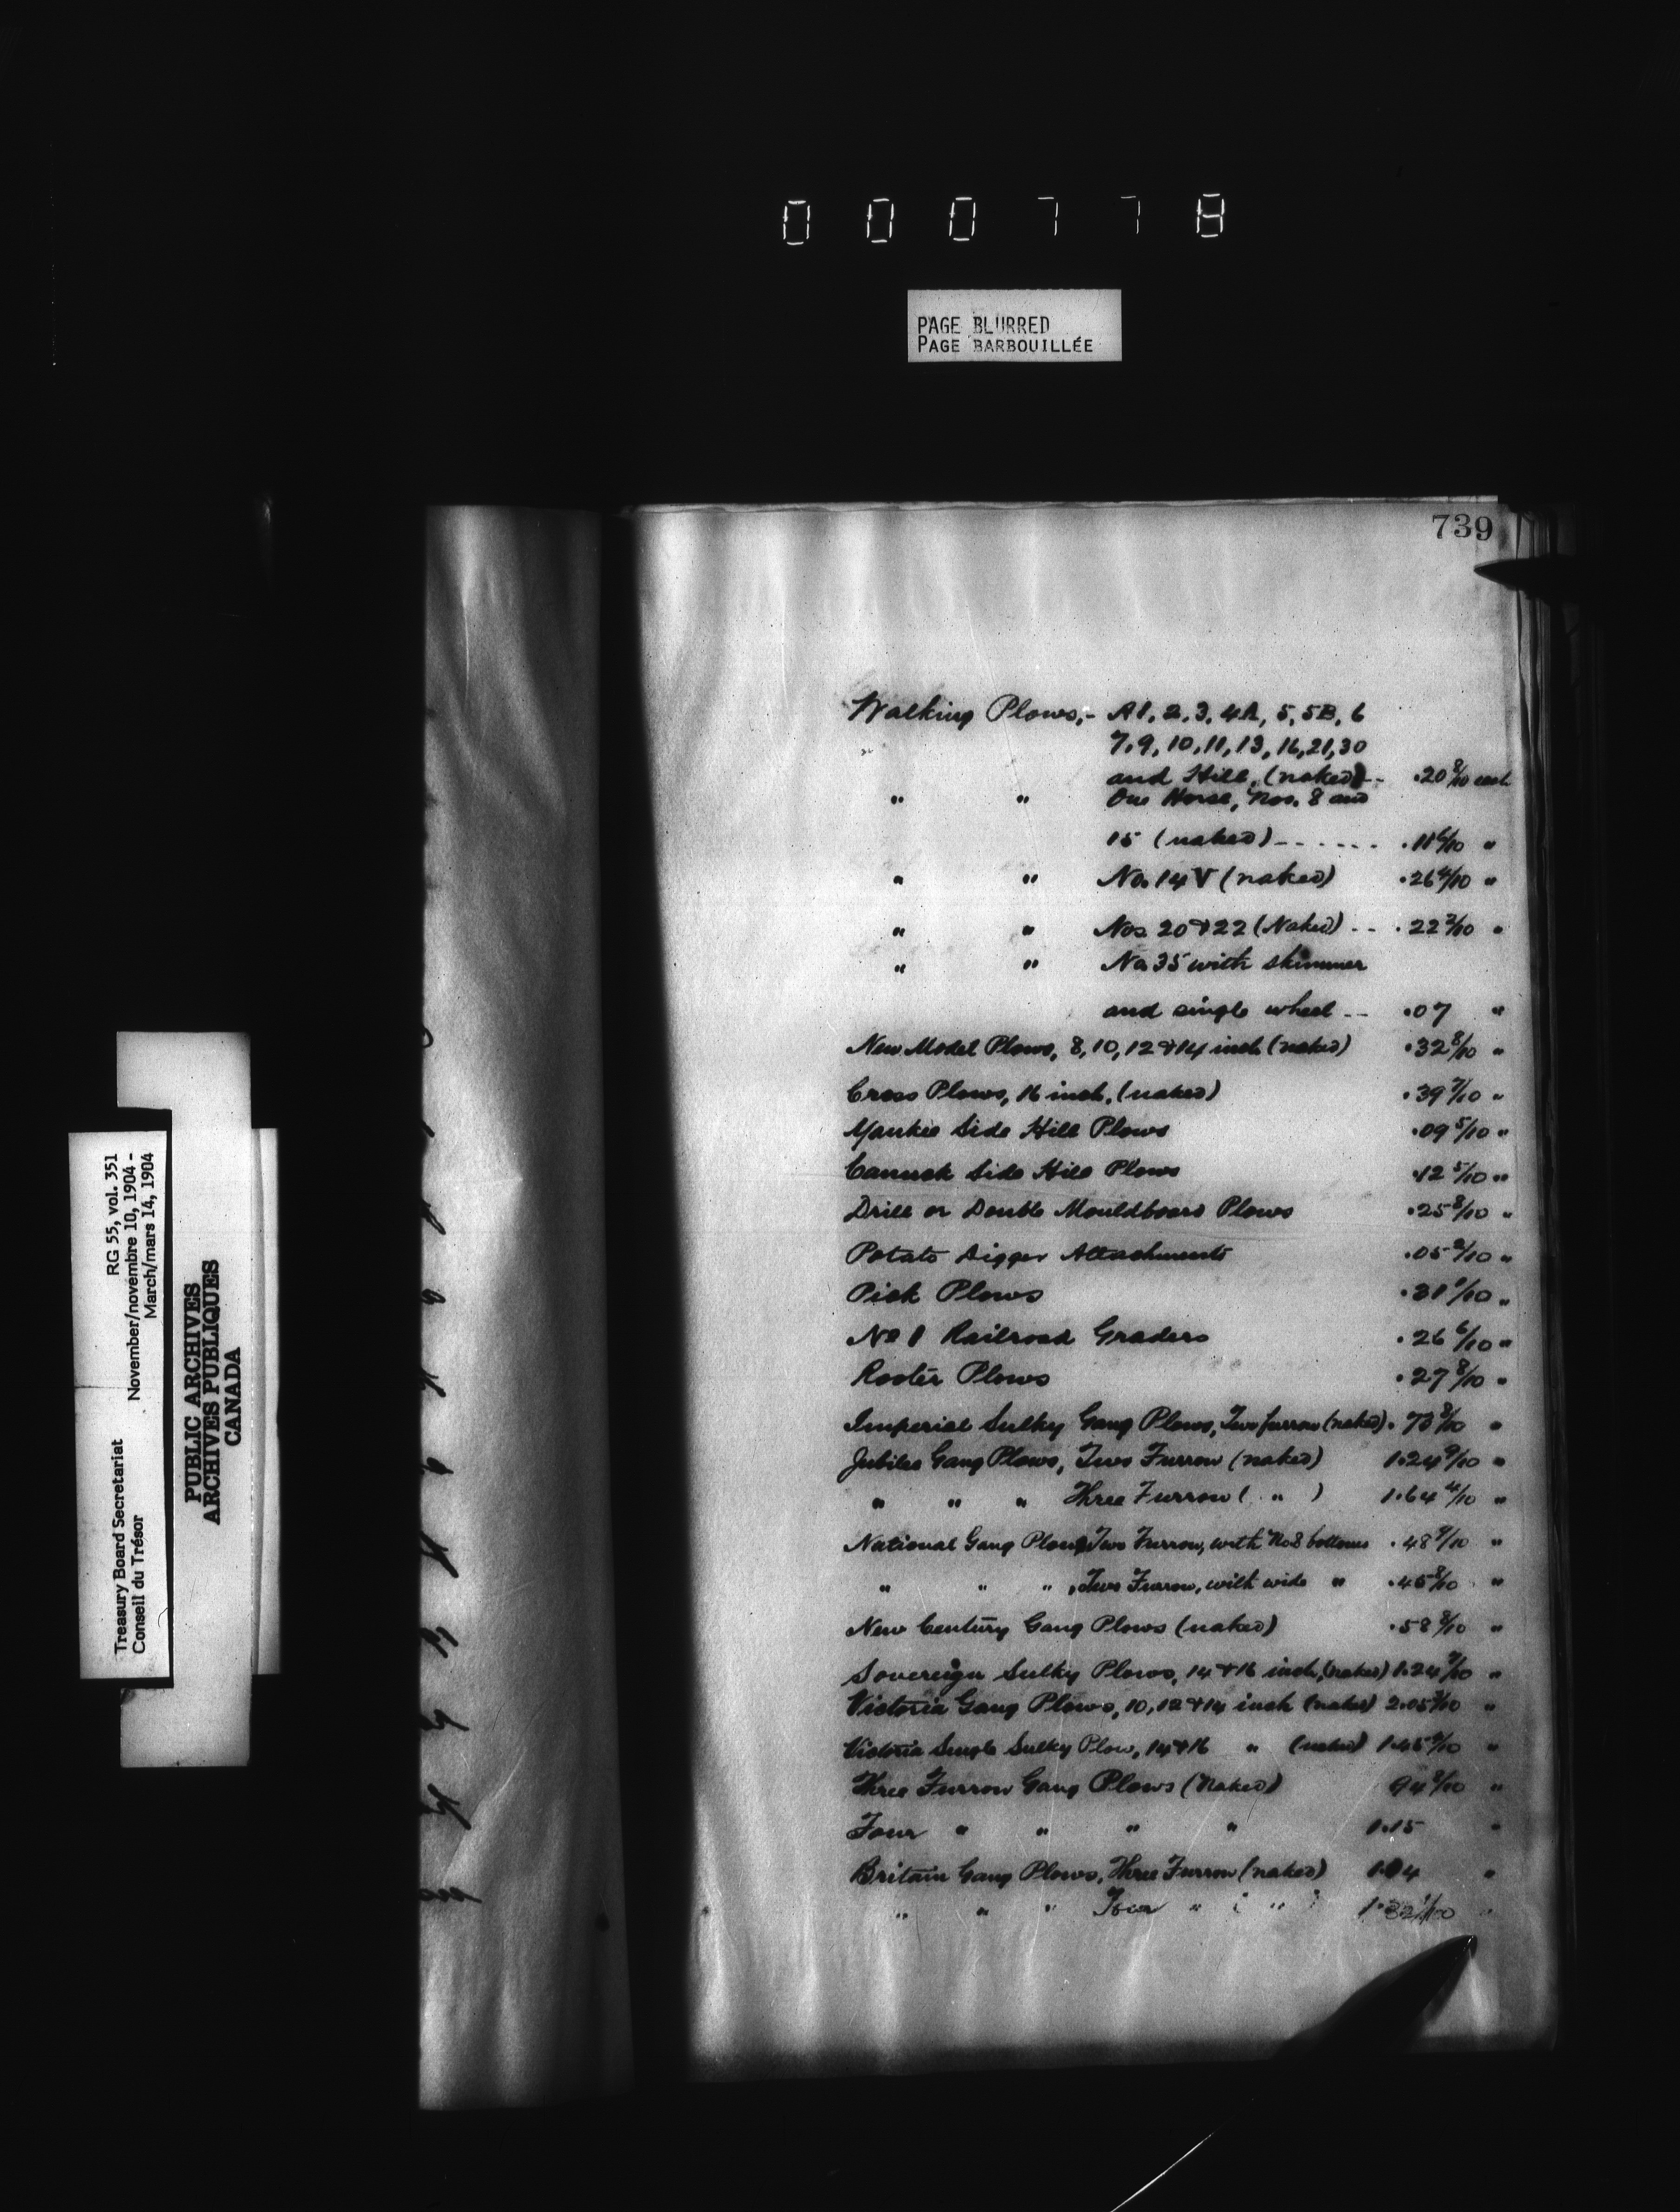 000778
PAGE BLURRED
PAGE BARBOUILLÉE
739
Walking Plows,- A1, 2, 3, 4A, 5, 5B, 6
" 7, 9, 10, 11, 13, 16, 21, 30
and Hill, (naked)-- .20 8/10 each
" " One Horse, Nos. 8 and
15 (naked)------ .11 6/10 "
" " No. 14 V (naked) .26 4/10 "
" " Nos. 20 & 22 (Naked) -- .22 2/10 "
" " No. 35 with skimmer
and single wheel -- .07 "
New Model Plows, 8, 10, 12 & 14 inch (naked) .32 8/10 "
Cross Plows, 16 inch, (naked) .39 7/10 "
Yankee Side Hill Plows .09 5/10 "
Canuck Side Hill Plows .12 5/10 "
Drill or Double Mouldboard Plows .25 8/10 "
Potato Digger Attachments .05 2/10 "
Pick Plows .31 1/10 "
No 1 Railroad Graders .26 6/10 "
Rooter Plows .27 8/10 "
Imperial Sulky Gang Plows, Two furrow (naked) .73 8/10 "
Jubilee Gang Plows, Two Furrow (naked) 1.24 9/10 "
" " " Three Furrow ( " ) 1.64 4/10 "
National Gang Plows, Two Furrow, with No 8 bottoms .48 9/10 "
" " ", Two Furrow, with wide " .45 8/10 "
New Century Gang Plows (naked) .58 8/10 "
Sovereign Sulky Plows, 14 & 16 inch, (naked) 1.24 9/10 "
Victoria Gang Plows, 10, 12 & 14 inch (naked) "
Victoria Single Sulky Plow, 14 & 16 " (naked) "
Three Furrow Gang Plows (Naked) 94 8/10 "
Four " " " " 1.15 "
Britain Gang Plows, Three Furrow (naked) "
" " " Four " ( " ) "
Treasury Board Secretariat RG 55, vol. 351
Conseil du Trésor November/novembre 10, 1904 -
March/mars 14, 1904
PUBLIC ARCHIVES
ARCHIVES PUBLIQUES
CANADA